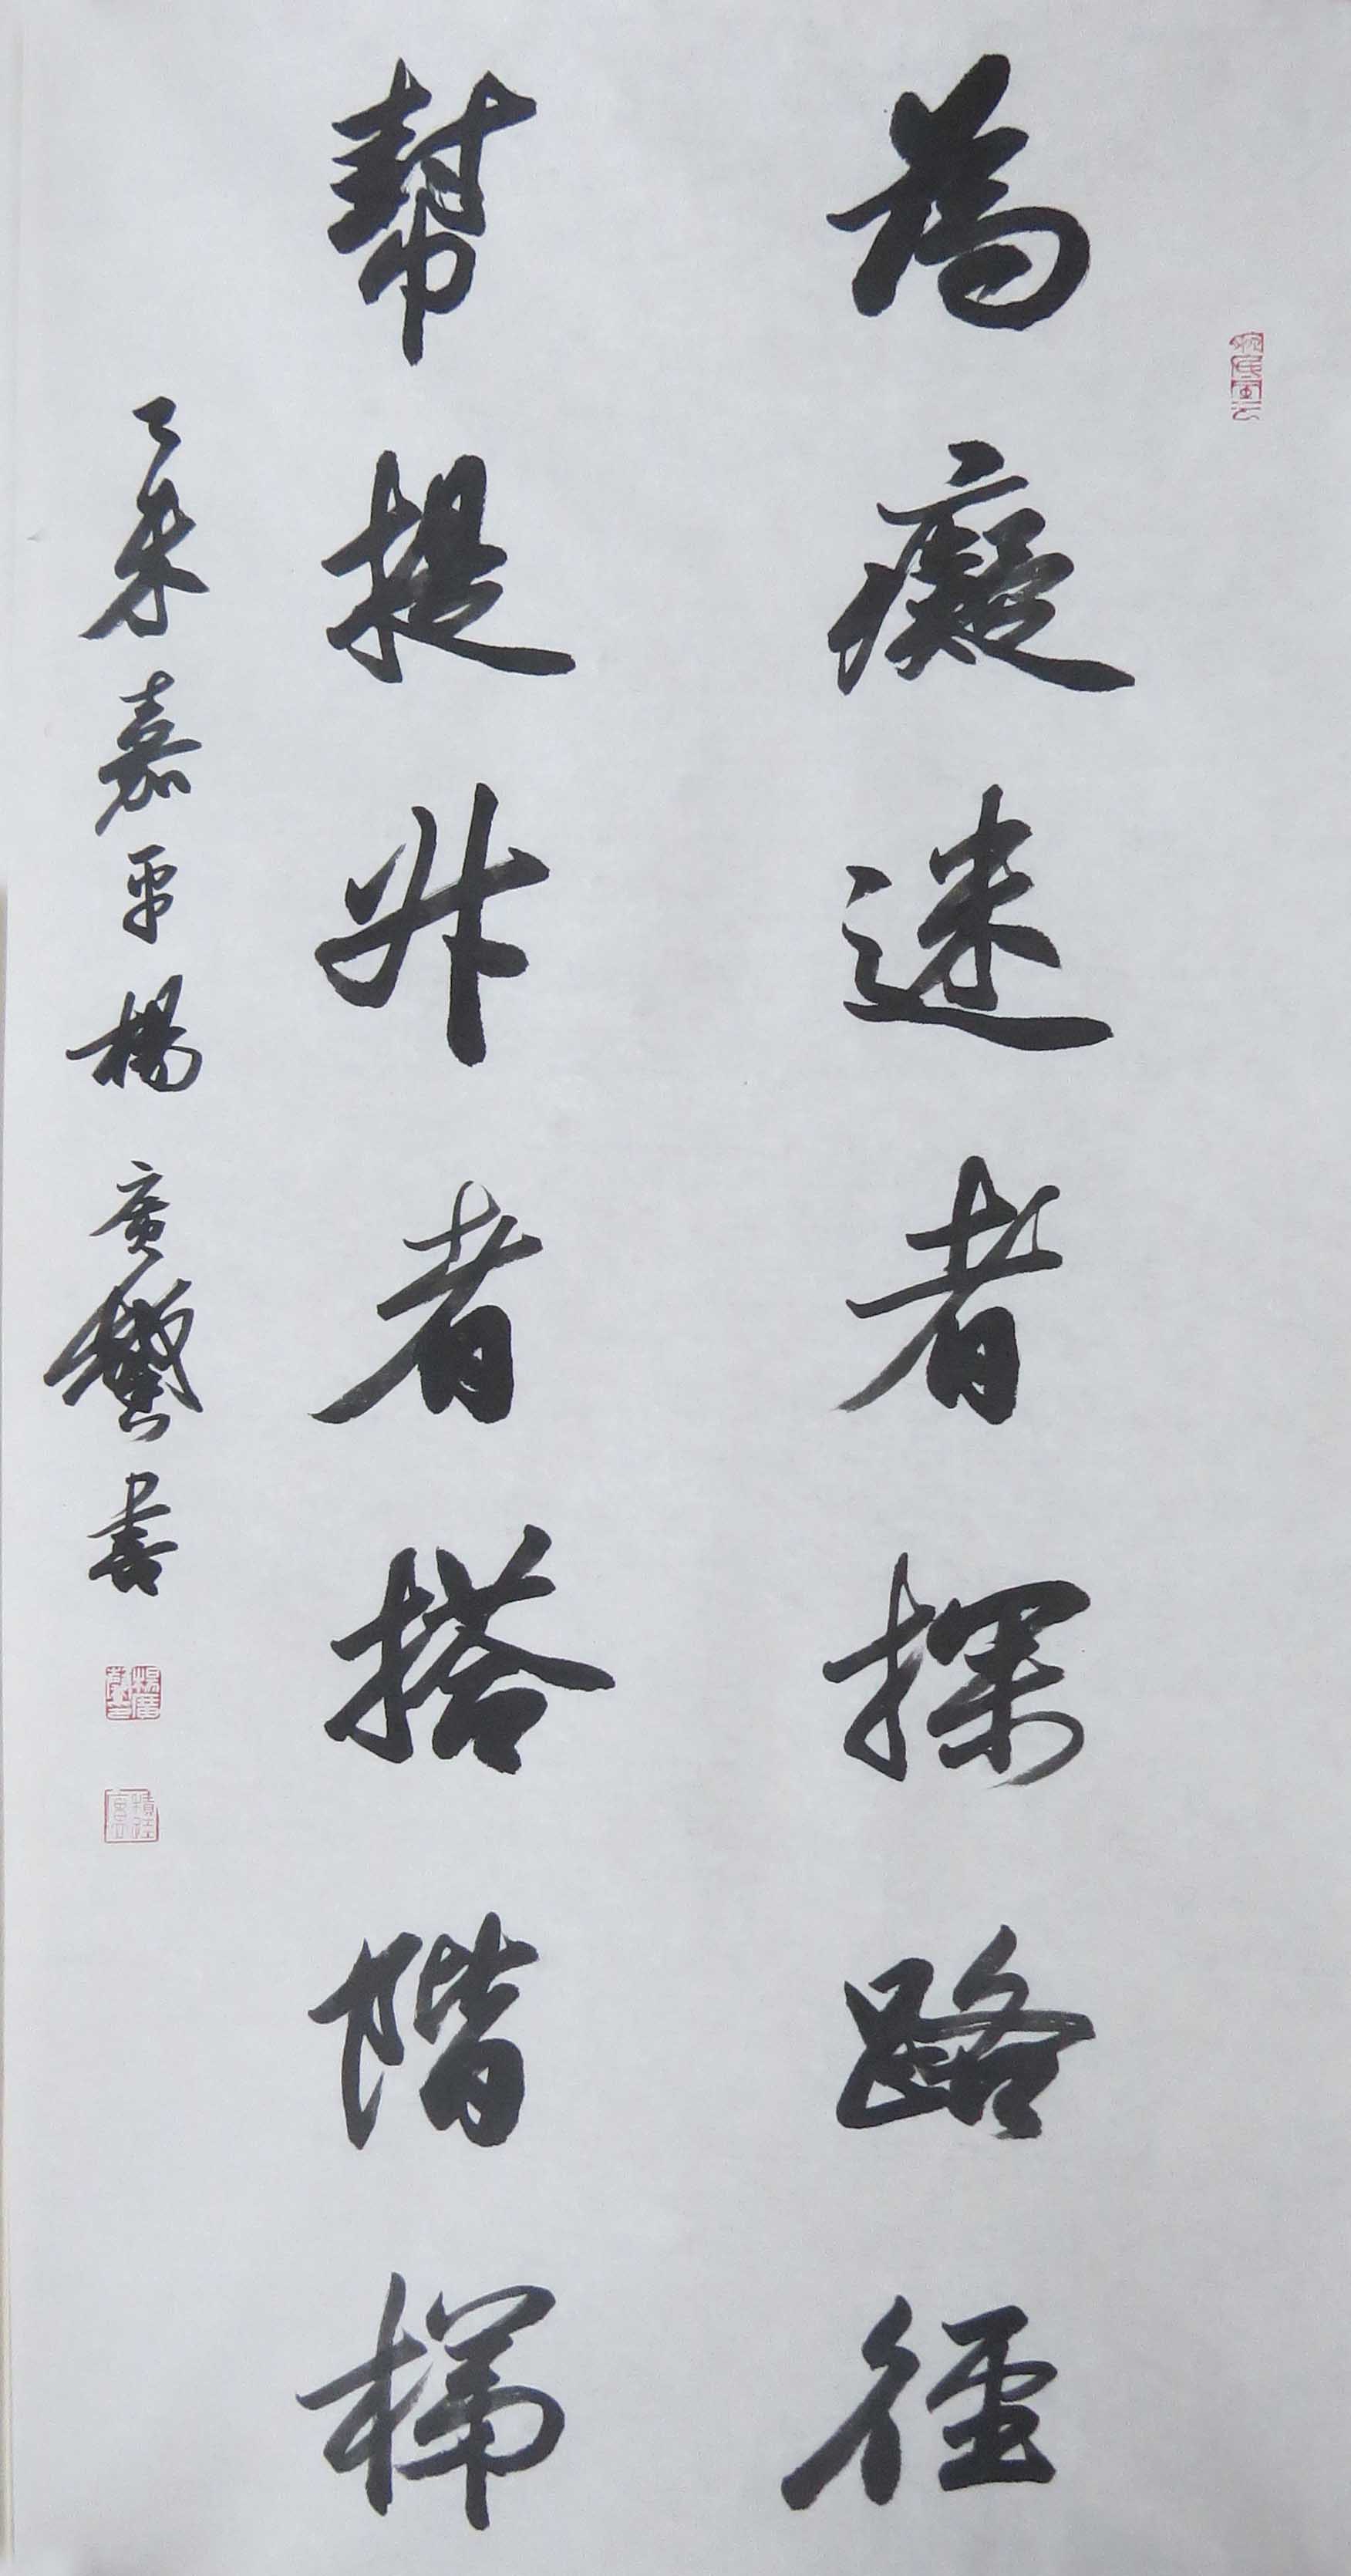 為癡迷者探路徑
幫提升者搭階梯
乙未嘉平楊廣馨書
楊廣馨印